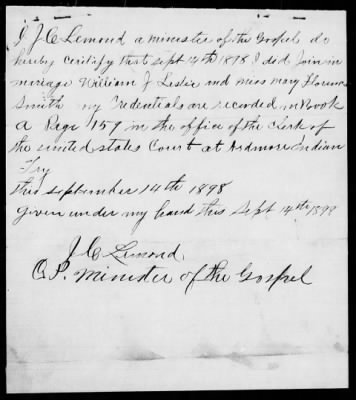 I J C Lemond a minister of the Gospel do
hereby certify that sept 14th 1898 I did Join in
mariage William J Leslie and miss mary Florence
Smith my Credentials are recorded in Book
a Page 159 in the office of the Clerk of
the united states Court at Ardmore Indian
Try
this september 14th 1898
given under my hand this Sept 14th 1898
J C Lemond
C P. Minister of the Gospel